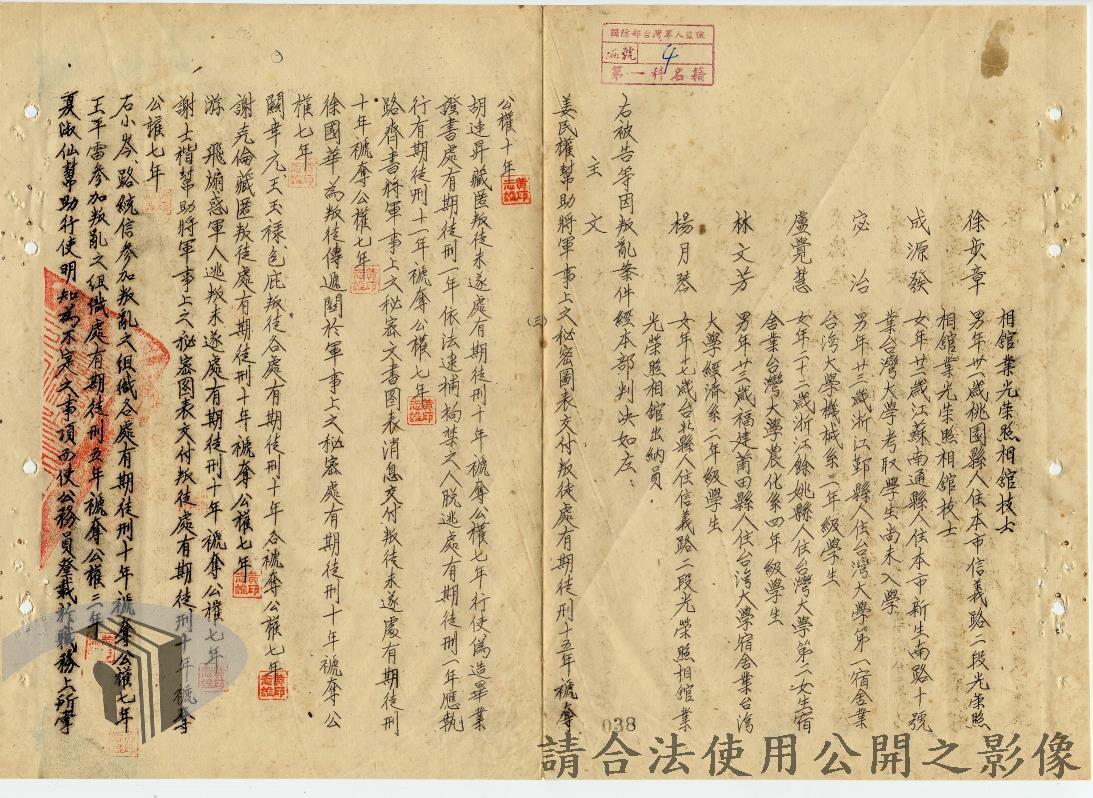 國防部台灣軍人監獄
編號 4
第一科名籍
相舘業光荣照相舘技士
徐步章 男年廿一歲桃園縣人住本市信義路二段光荣照
相舘業光荣照相舘技士
成源發 女年廿二歲江蘇南通縣人住本市新生南路十號
業台灣大學考取學生尚未入學
宓 治 男年廿三歲浙江鄞縣人住台灣大學第一宿舍業
台湾大學機械系三年級學生
盧覺慧 女年二十二歲浙江餘姚縣人住台灣大學第一女生宿
舍業台灣大學農化系四年級學生
林文芳 男年廿二歲福建莆田縣人住台湾大學宿舍業台湾
大學經濟系二年級學生
楊月琴 女年十七歲台北縣人住信義路二段光荣照相舘業
光荣照相舘出納員
右被告等因叛亂案件經本部判決如左:
主文
姜民權幫助將軍事上之秘密圖表交付叛徒處有期徒刑十五年褫奪
(三)
公權十年
胡達昇藏匿叛徒未遂處有期徒刑十年褫奪公權七年行使偽造畢業
證書處有期徒刑一年依法逮捕拘禁之人脫逃處有期徒刑一年應執
行有期徒刑十一年褫奪公權七年
路齊書將軍事上之秘密文書图表消息交付叛徒未遂處有期徒刑
十年褫奪公權七年
徐國華為叛徒傳遞関於軍事上之秘密處有期徒刑十年褫奪公
權七年
闕幸元王玉祿包庇叛徒各處有期徒刑十年各褫奪公權七年
謝克倫藏匿叛徒處有期徒刑十年褫奪公權七年
游 飛煽惑軍人逃叛未遂處有期徒刑十年褫奪公權七年
謝士楷幫助將軍事上之秘密图表交付叛徒處有期徒刑十年褫奪
公權七年
石小岑、路統信参加叛亂之组織各處有期徒刑十年褫奪公權七年
王平雷参加叛亂之组織處有期徒刑五年褫奪公權三年
夏淑仙幫助行使明知為不实之事項而使公務員登載於職務上所掌
038
請合法使用公開之影像